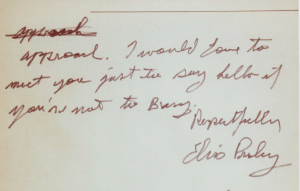 approach
approach. I would Love to
meet you just too say hello if
you're not to Busy.
Respectfully
Elvis Presley